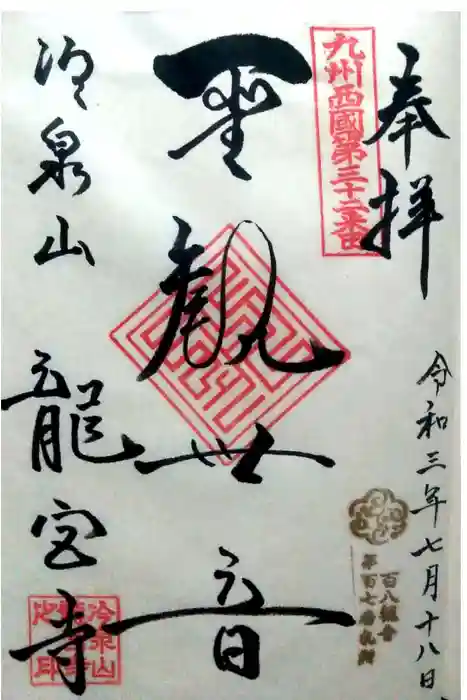 奉拝
九州西國第三十二番
令和三年七月十八日
百八観音
第百七番札所
聖観世音
冷泉山
龍宮寺